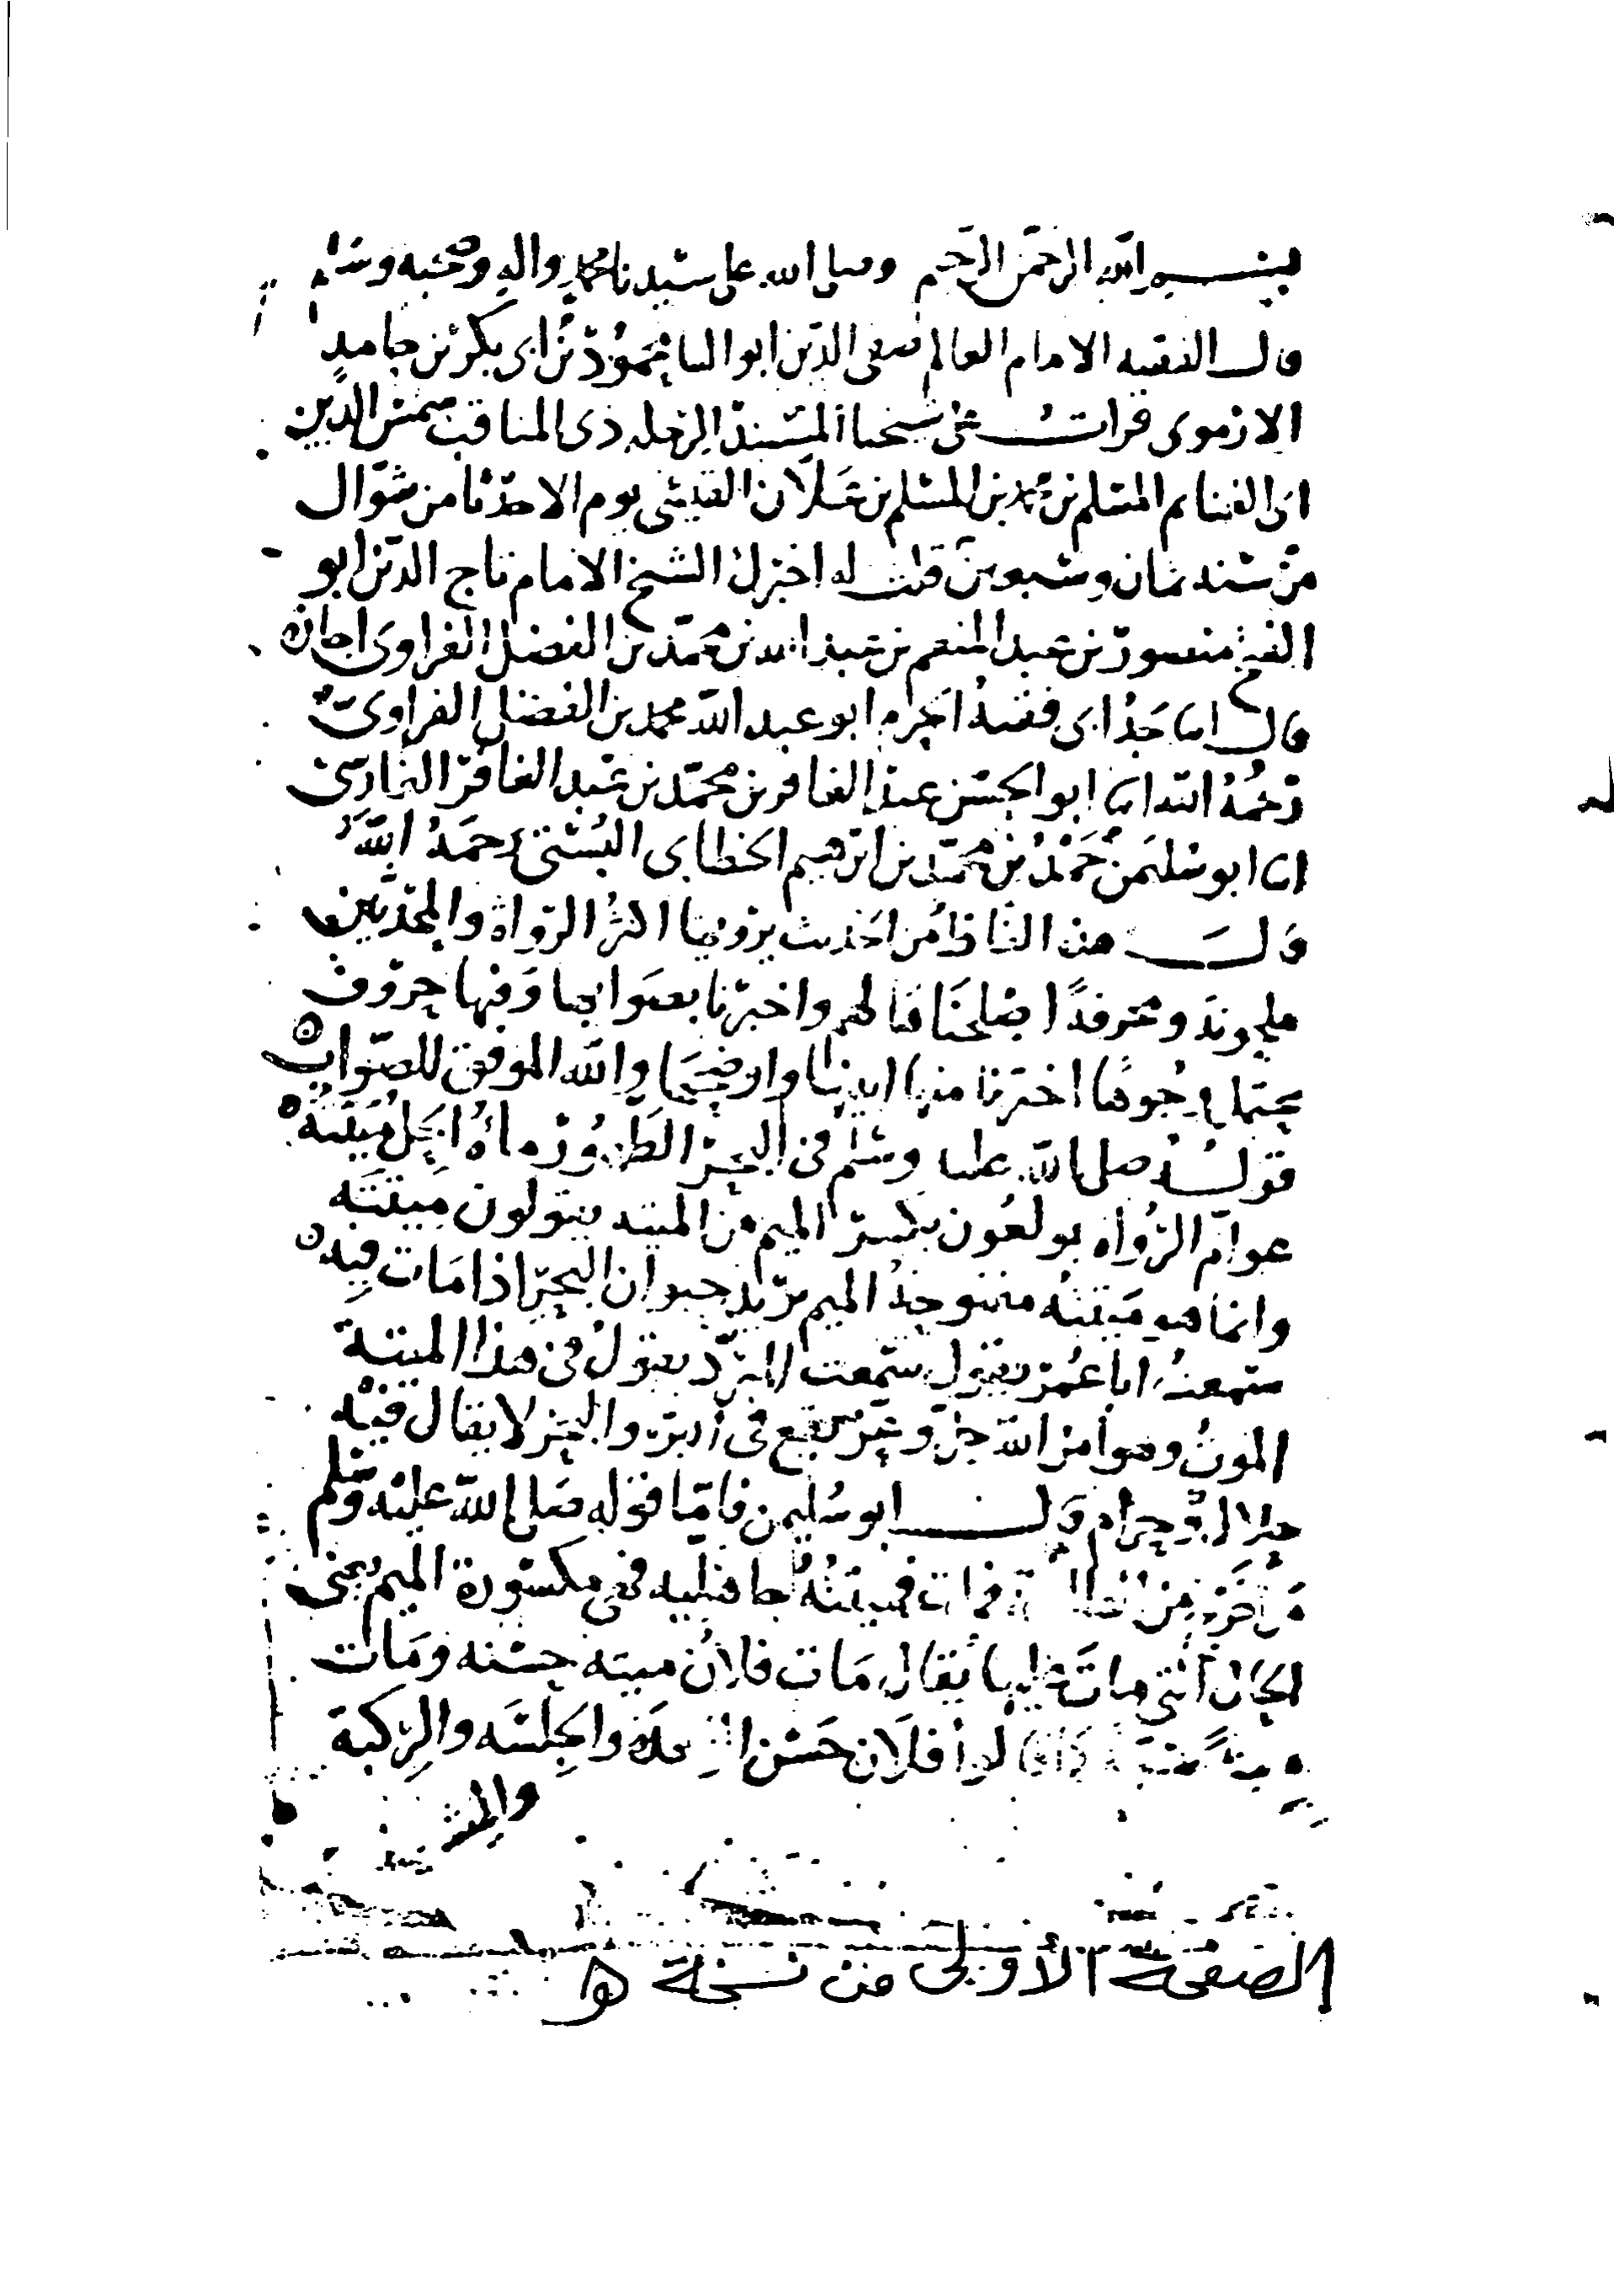 بسم الله الرحمن الرحيم وصلى الله على سيدنا محمد واله وصحبه وسلم
قال الفقيه الامام العالم صفى الدين ابو الثنا محمود بن ابى بكر بن حامد
الارموى قرات على شيخنا المسند الرحله ذى المناقب شمس الدين
ابى الغنايم المسلم بن محمد بن المسلم بن علان القيسى يوم الاحد ثامن شوال
من سنه ثمان وسبعين قلت له اخبرك الشيخ الامام تاج الدين ابو
الفتح منصور بن عبد المنعم بن عبد الله بن محمد بن الفضل الفراوى اجازه
قال انا جد ابى فقيه الحرم ابو عبد الله محمد بن الفضل الفراوى
رحمه الله انا ابو الحسين عبد الغافر بن محمد بن عبد الغافر الفارسى
انا ابو سليمن حمد بن محمد بن ابرهيم الخطابى البستى رحمه الله
قال هذه الفاظ من الحديث يرويها اكثر الرواة والمحدثين
ملحونة ومحرفة اصلحناها لهم واخبرنا بصوابها وفيها حروف
تحتمل وجوها اخترنا منها ابينها واوضحها والله الموفق للصواب
قوله صلى الله عليه وسلم فى البحر الطهور ماؤه الحل ميتته
عوام الرواه يولعون بكسر الميم من الميته يقولون ميتته
وانما هو ميتته مفتوحة الميم يريد حيوان البحر اذا مات فيه
سمعت ابا عمر يقول سمعت المبرد يقول فى هذا الميتة
الموت وهو امر الله عز وجل يقع فى البر والبحر لا يقال فيه
حلال ولا حرام قال ابو سليمن فاما قوله صلى الله عليه وسلم
من خرج من الطاعة فمات فميتته جاهليه فهى مكسورة الميم يعنى
الحال التى مات عليها يقال مات فلان ميته حسنه ومات
ميتة سيئة كما قالوا فلان حسن القعدة والجلسه والركبة
والمشية
الصفحة الأولى من نسخة هـ